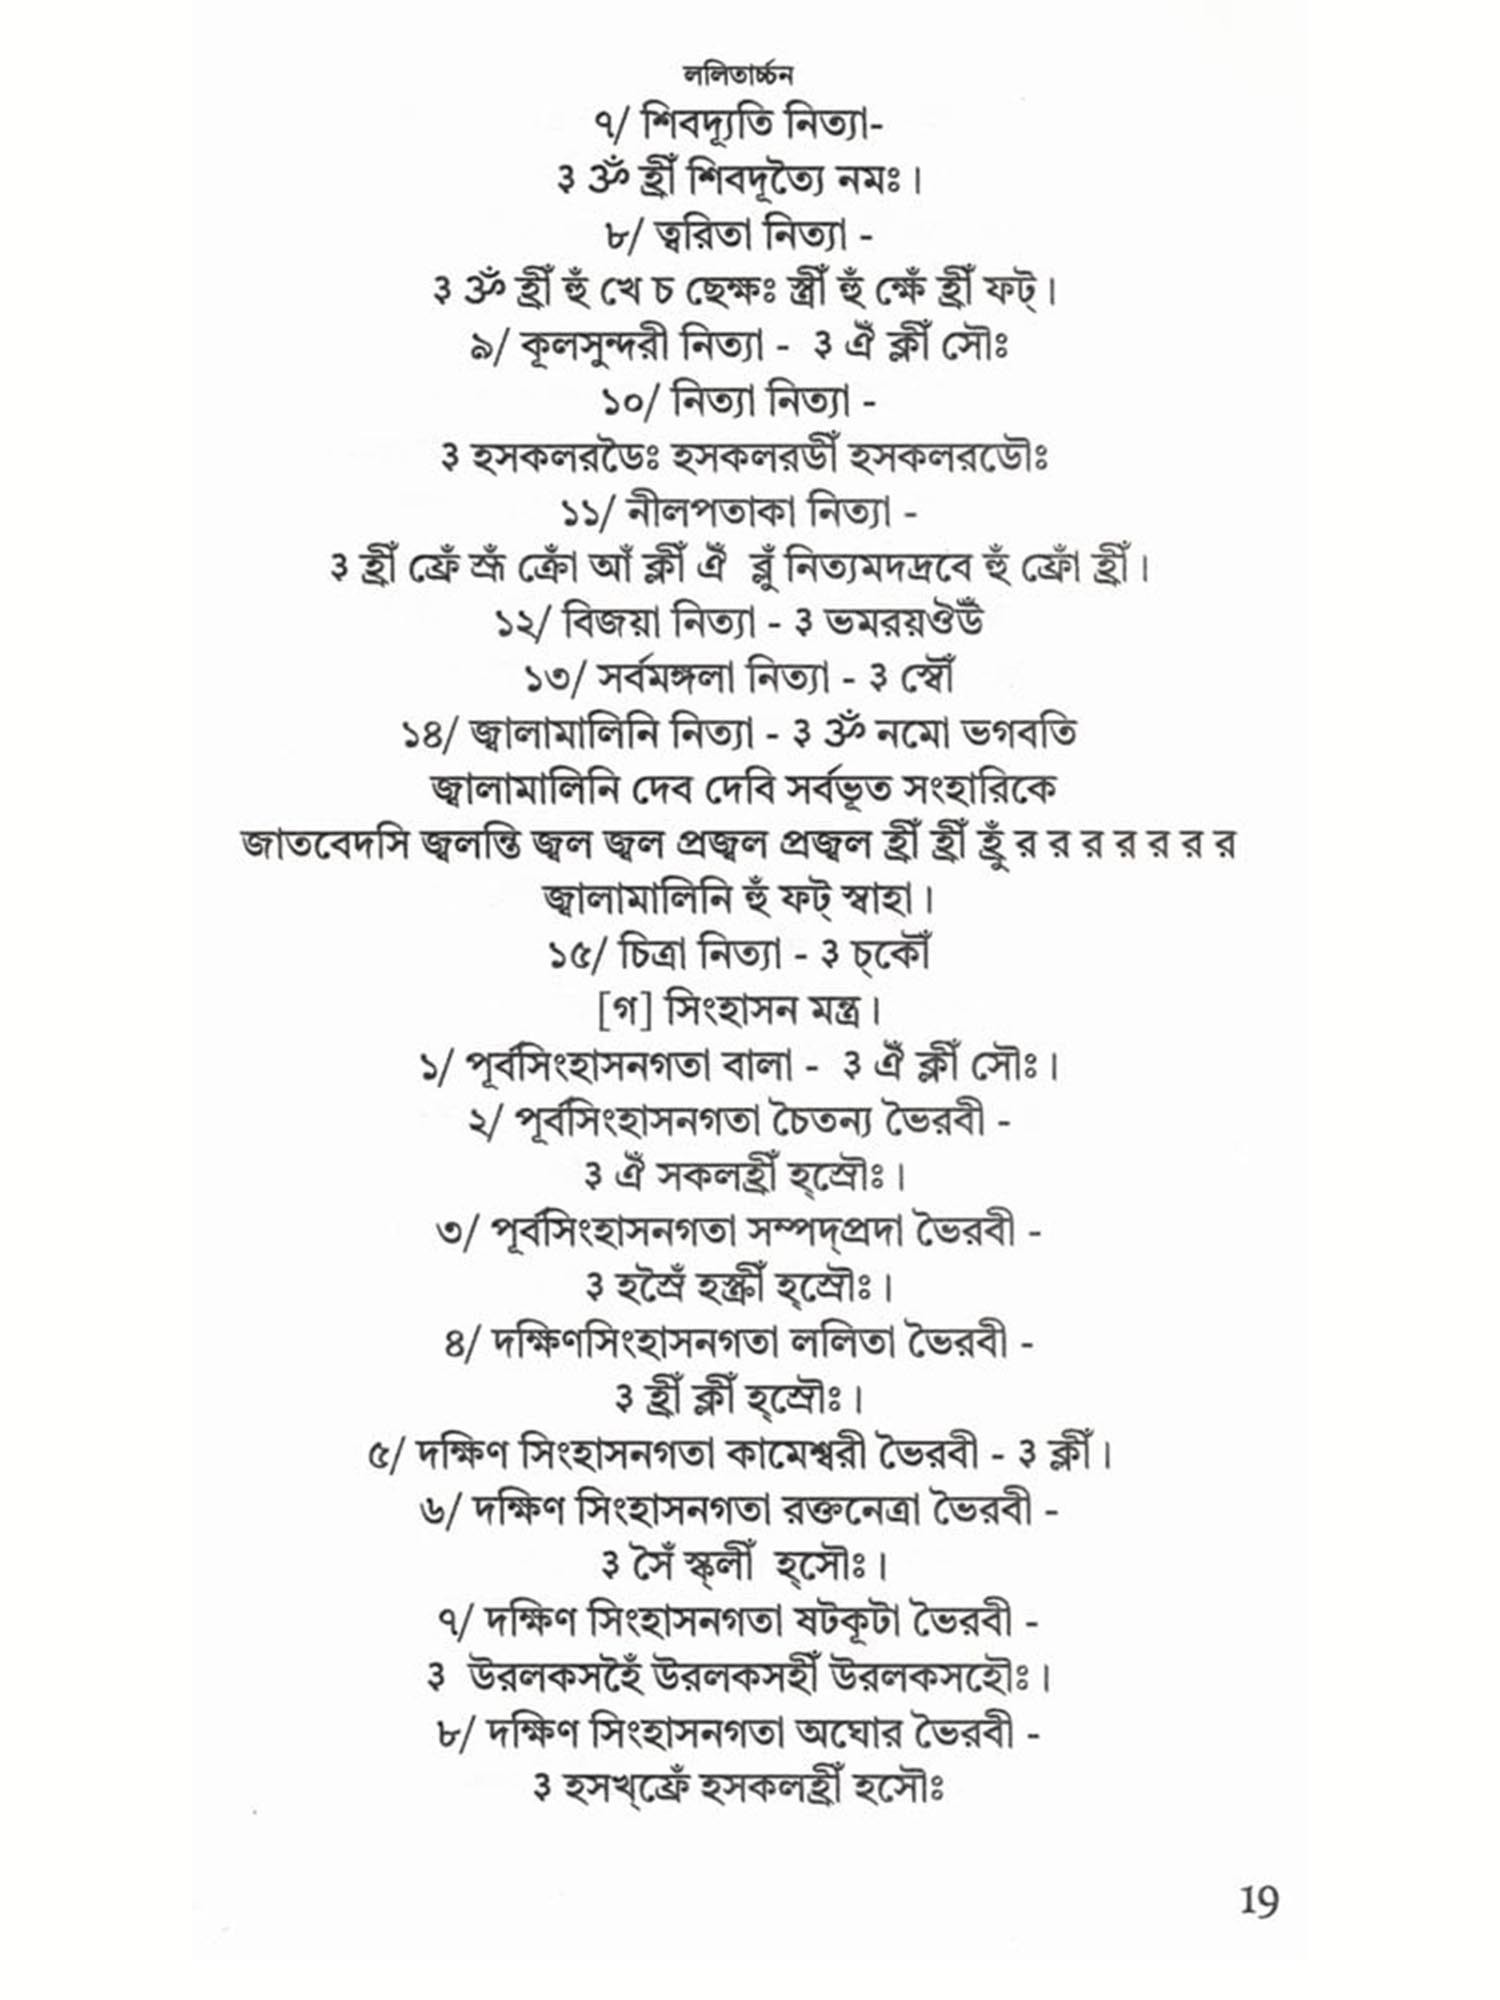 ললিতার্চ্চন
৭/ শিবদ্যূতি নিত্যা-
३ ॐ হ্রীঁ শিবদূত্যৈ নমঃ।
৮/ ত্বরিতা নিত্যা -
३ ॐ হ্রীঁ হুঁ খে চ ছেক্ষঃ স্ত্রীঁ হুঁ ক্ষেঁ হ্রীঁ ফট্।
৯/ কূলসুন্দরী নিত্যা - ३ ঐঁ ক্লীঁ সৌঃ
১০/ নিত্যা নিত্যা -
३ হসকলরডৈঃ হসকলরডীঁ হসকলরডৌঃ
১১/ নীলপতাকা নিত্যা -
३ হ্রীঁ ফ্রেঁ স্রূঁ ক্রোঁ আঁ ক্লীঁ ঐঁ ব্লুঁ নিত্যমদদ্রবে হুঁ ফ্রোঁ হ্রীঁ।
১২/ বিজয়া নিত্যা - ३ ভমরয়ঔঊঁ
১৩/ সর্বমঙ্গলা নিত্যা - ३ স্বৌঁ
১৪/ জ্বালামালিনি নিত্যা - ३ ॐ নমো ভগবতি
জ্বালামালিনি দেব দেবি সর্বভূত সংহারিকে
জাতবেদসি জ্বলন্তি জ্বল জ্বল প্রজ্বল প্রজ্বল হ্রীঁ হ্রীঁ হ্রুঁ র র র র র র র
জ্বালামালিনি হুঁ ফট্ স্বাহা।
১৫/ চিত্রা নিত্যা - ३ চ্কৌঁ
[গ] সিংহাসন মন্ত্র।
১/ পূর্বসিংহাসনগতা বালা - ३ ঐঁ ক্লীঁ সৌঃ।
২/ পূর্বসিংহাসনগতা চৈতন্য ভৈরবী -
३ ঐঁ সকলহ্রীঁ হ্স্রৌঃ।
৩/ পূর্বসিংহাসনগতা সম্পদ্প্রদা ভৈরবী -
३ হস্রৈঁ হস্ক্রীঁ হ্স্রৌঃ।
৪/ দক্ষিণসিংহাসনগতা ললিতা ভৈরবী -
३ হ্রীঁ ক্লীঁ হ্স্রৌঃ।
৫/ দক্ষিণ সিংহাসনগতা কামেশ্বরী ভৈরবী - ३ ক্লীঁ।
৬/ দক্ষিণ সিংহাসনগতা রক্তনেত্রা ভৈরবী -
३ সৈঁ স্ক্লীঁ হ্সৌঃ।
৭/ দক্ষিণ সিংহাসনগতা ষটকূটা ভৈরবী -
३ উরলকসহৈঁ উরলকসহীঁ উরলকসহৌঃ।
৮/ দক্ষিণ সিংহাসনগতা অঘোর ভৈরবী -
३ হসখ্ফ্রেঁ হসকলহ্রীঁ হসৌঃ
19